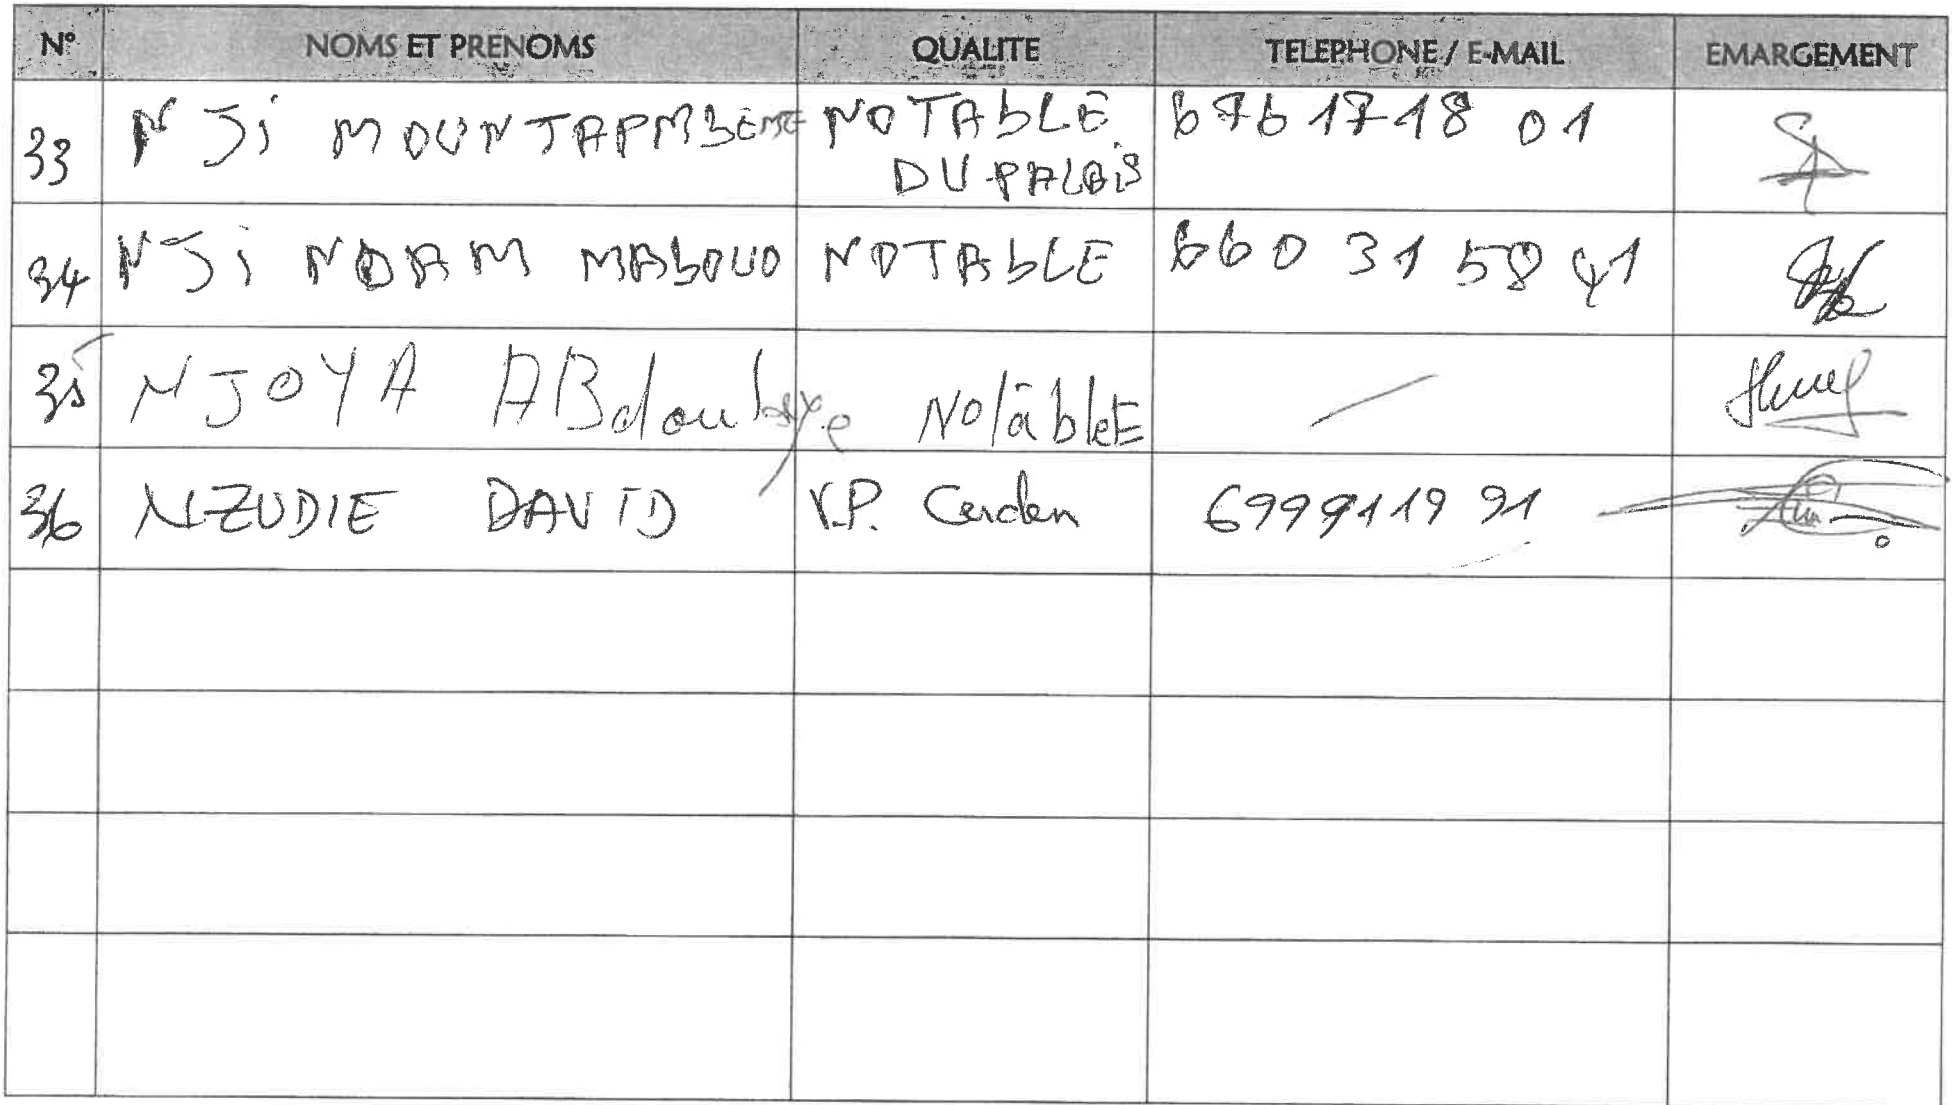 N° NOMS ET PRENOMS QUALITE TELEPHONE / E-MAIL EMARGEMENT
33 NJi MOUNTAPMBEME NOTABLE DU PALAIS 676 17 18 01
34 NJi NDAM MABOUO NOTABLE 660 31 58 41
35 NJOYA ABdoulaye Notable
36 NZUDIE DAVID V.P. 699911991